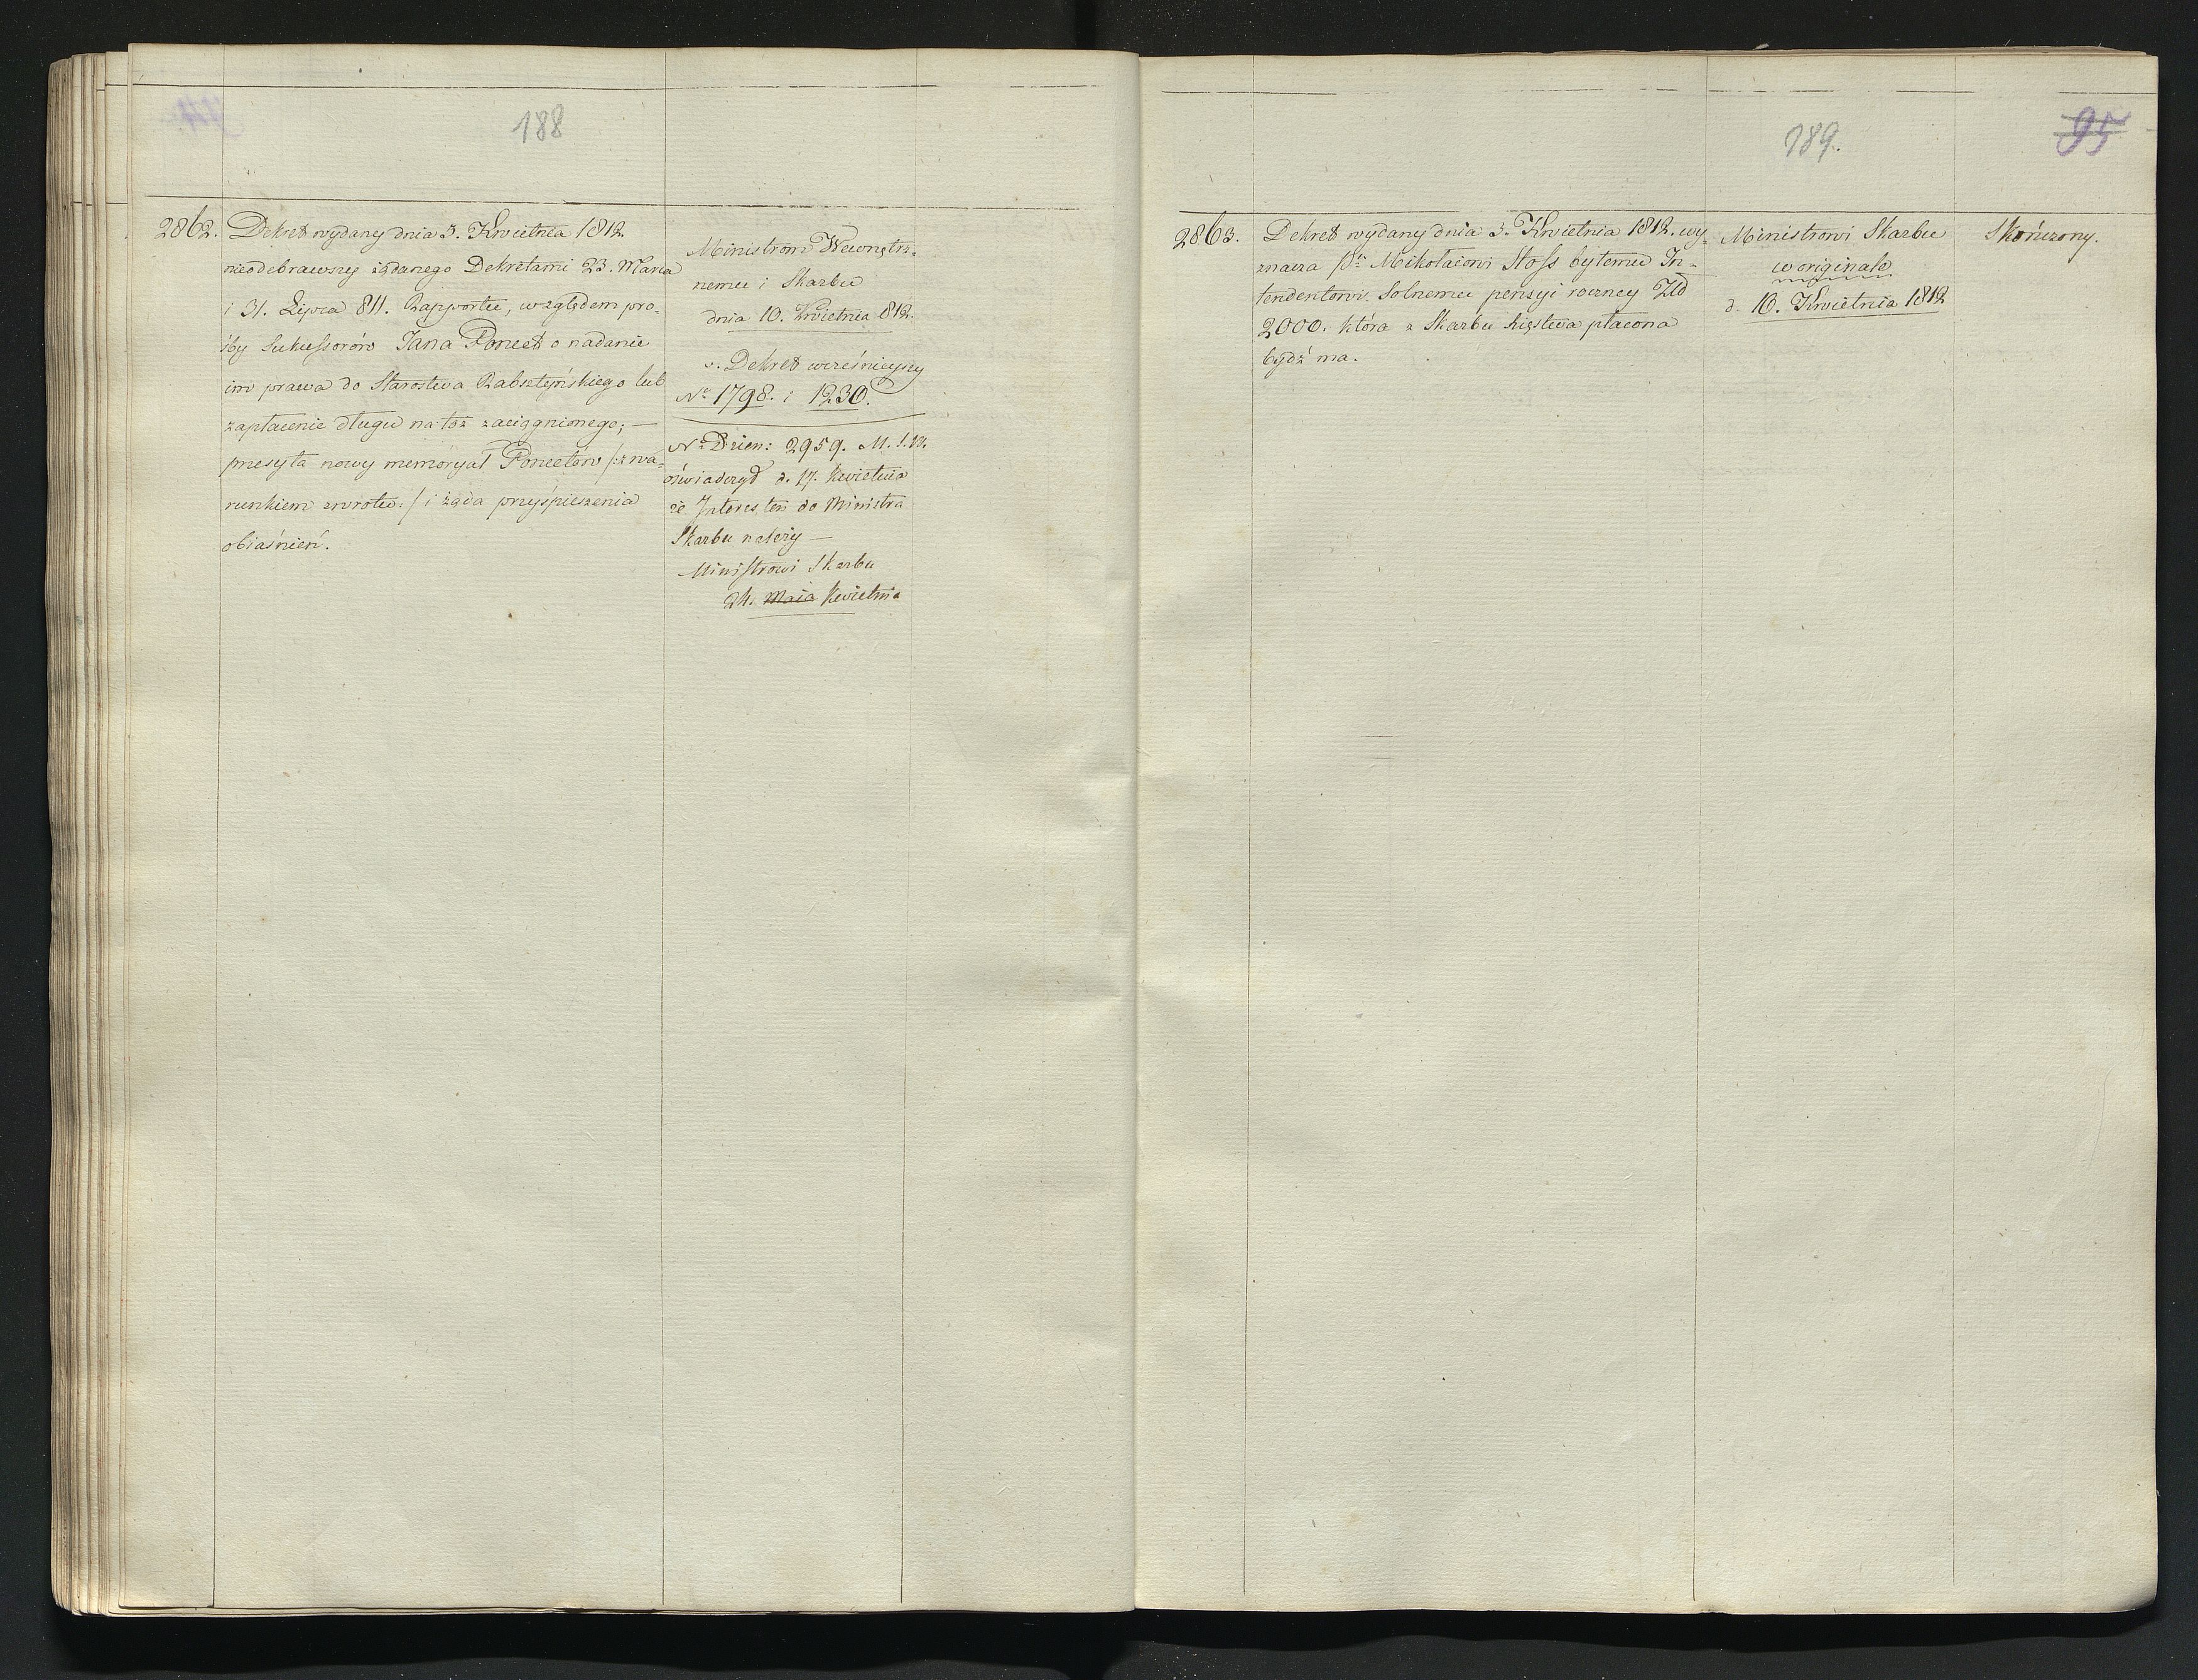 188
2862.
Dekret wydany dnia 3. Kwietnia 1812.
nieodebrawszy żądanego Dekretami 23. Marca
i 31. Lipca 811. Rapportu, względem pro-
śby Sukcessorów Jana Poncet o nadanie
im prawa do Starostwa Rabsztyńskiego lub
zapłacenie długu na toż zaciągnionego; —
przesyła nowy memoryał Poncetów /:z wa-
runkiem zwrotu:/ i żąda przyśpieszenia
obiaśnień.
Ministrom Wewnętrz-
nemu i Skarbu
dnia 10. Kwietnia 812.
v. Dekret wcześnieyszy
Nr 1798. i 1230.
Nr Dzien: 2959. M. S. W.
oświadczył d. 17. Kwietnia
że Interes ten do Ministra
Skarbu należy —
Ministrowi Skarbu
24. Maia Kwietnia
189.
95
2863.
Dekret wydany dnia 3. Kwietnia 1812. wy-
znacza Pr Mikołaiowi Stoss byłemu In-
tendentowi Solnemu pensyi roczney Złp
2000. która z Skarbu Księstwa płacona
bydź ma.
Ministrowi Skarbu
w originale
d. 10. Kwietnia 1812
Skończony.